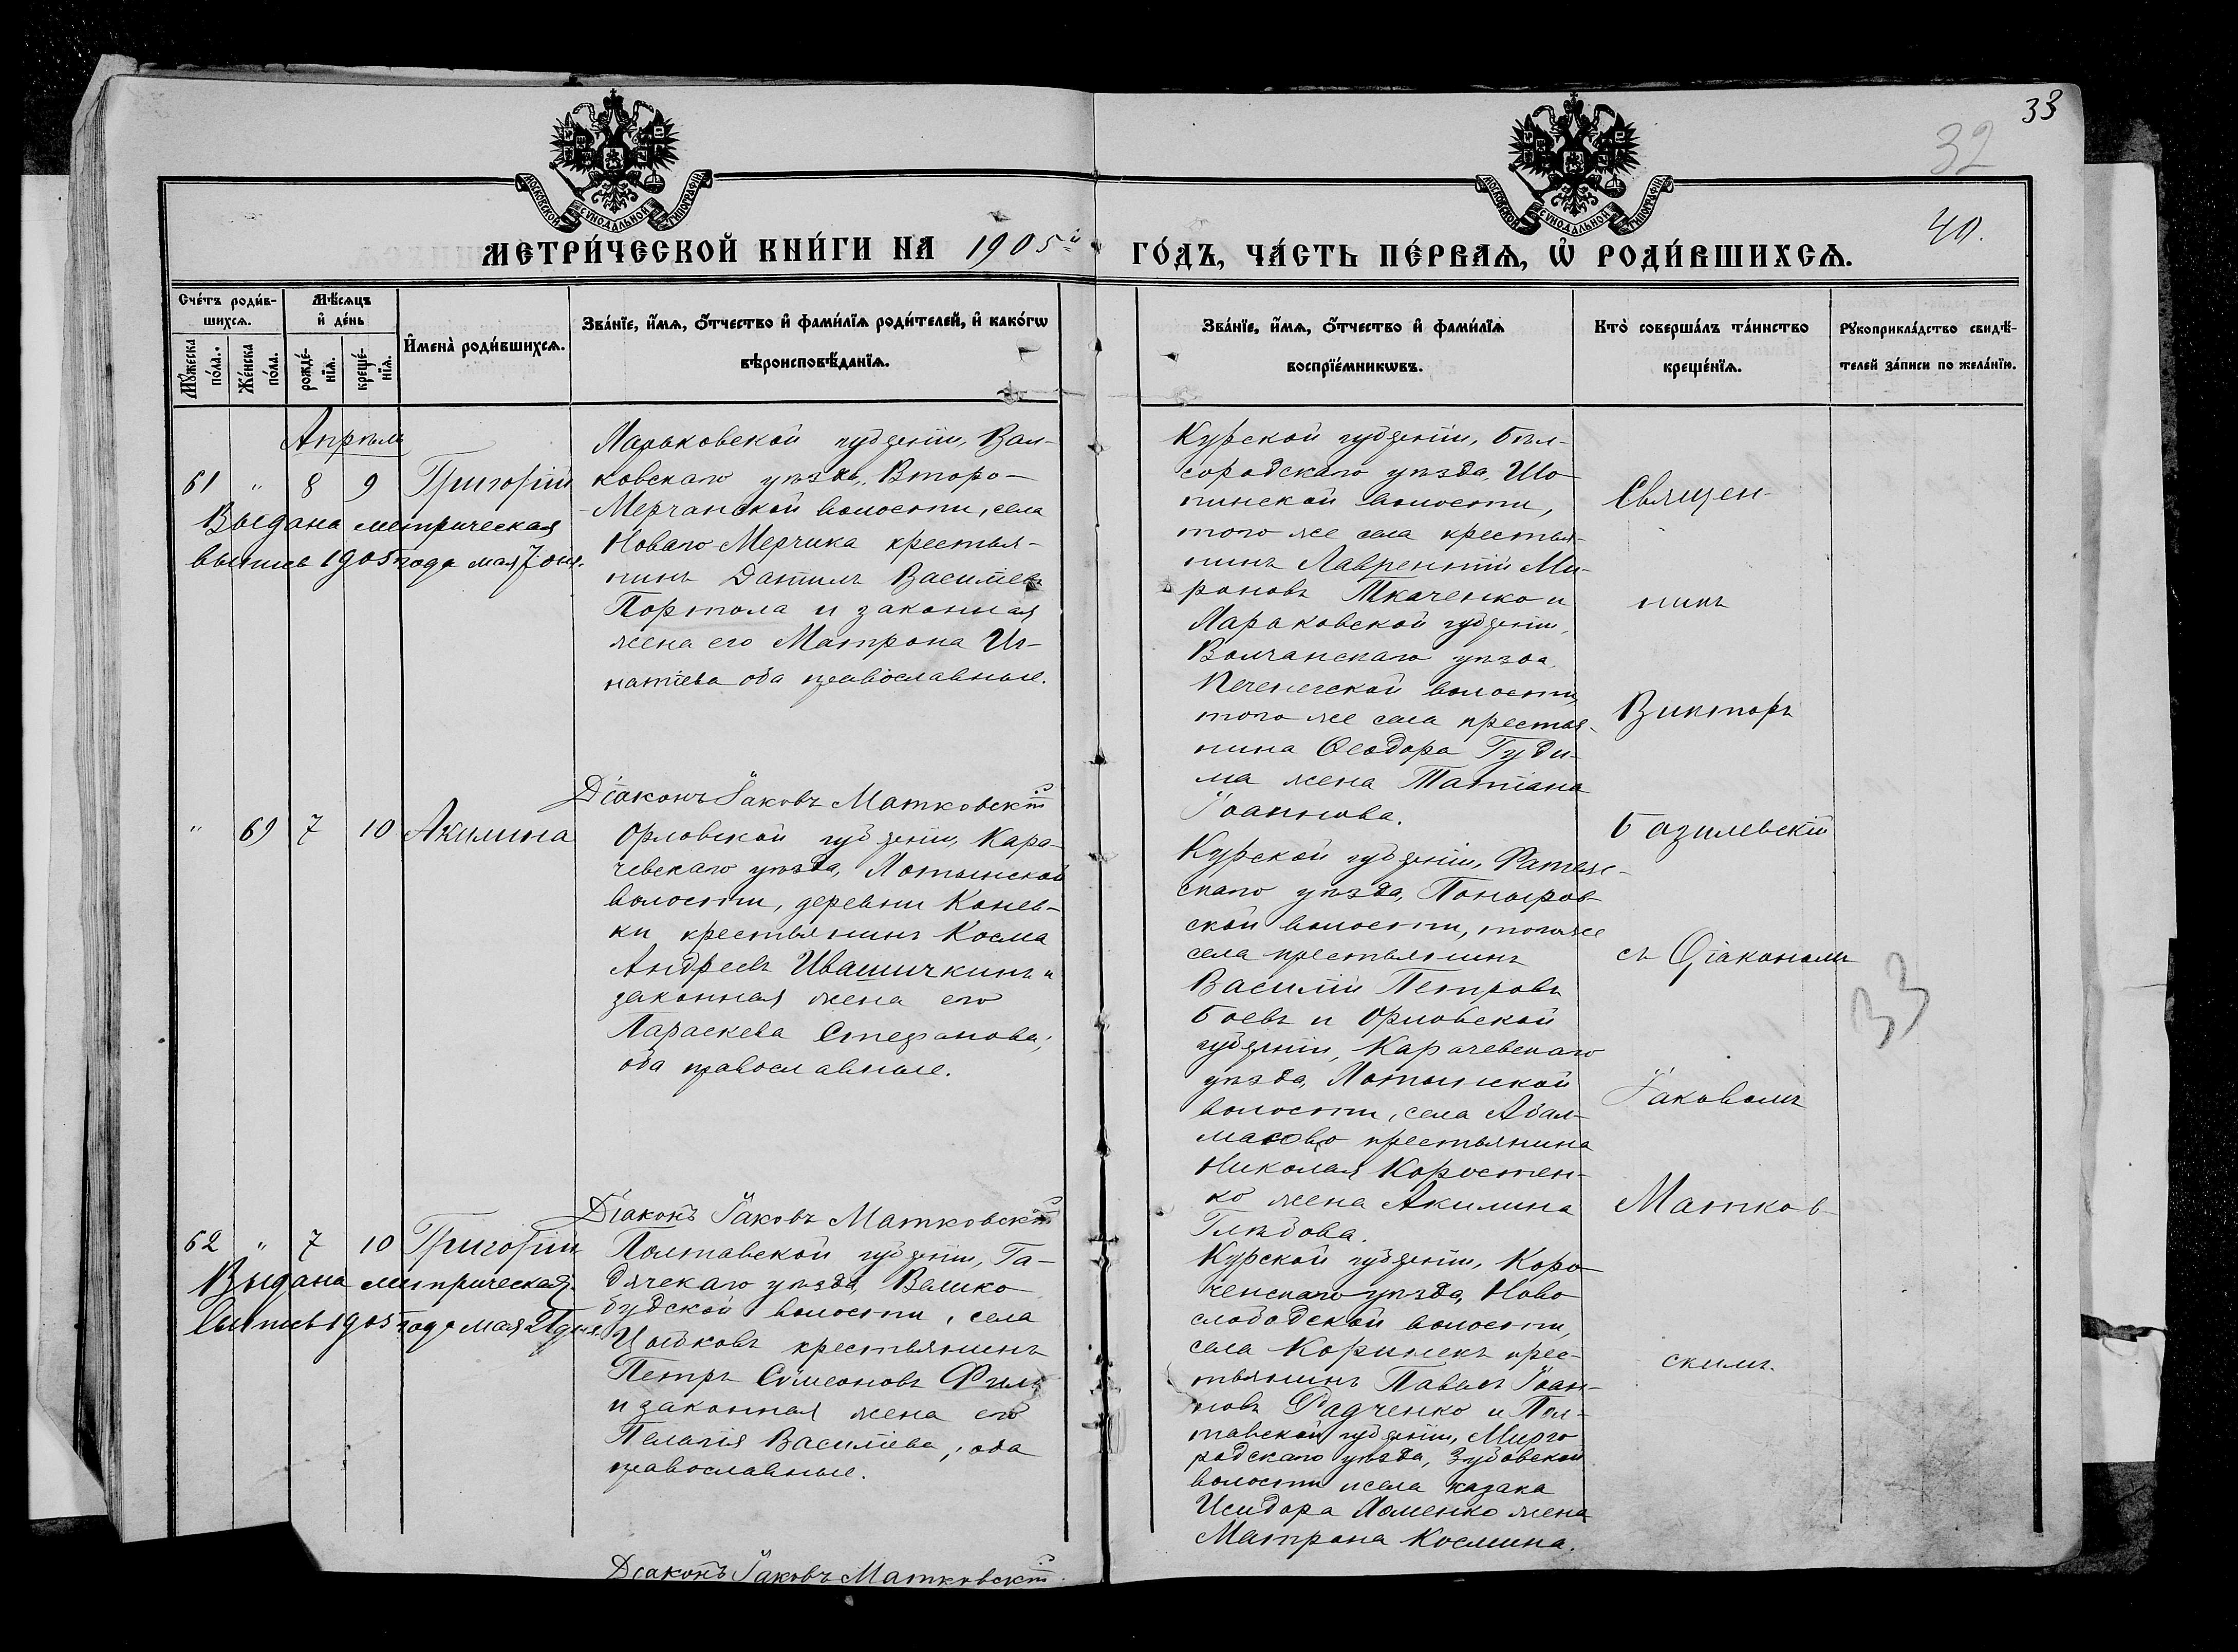 33
32
40.
МОСКОВСКОЙ СУНОДАЛЬНОЙ ТИПОГРАФІИ
МОСКОВСКОЙ СУНОДАЛЬНОЙ ТИПОГРАФІИ
МЕТРИ́ЧЕСКОЙ КНИ́ГИ НА 1905й
ГО́ДЪ, ЧА́СТЬ ПЕ́РВАѦ, Ѡ РОДИ́ВШИХСѦ.
Сче́тъ роди́в-
шихсѧ.
Мꙋ́жеска по́ла.
Же́нска по́ла.
Мѣ́сѧцъ
и де́нь
рожде́-
нїѧ.
креще́-
нїѧ.
Имена̀ роди́вшихсѧ.
Зва́нїе, и́мѧ, о́тчество и фами́лїѧ роди́телей, и како́гѡ
вѣроисповѣ́данїѧ.
Зва́нїе, и́мѧ, о́тчество и фами́лїѧ
воспрїе́мникѡвъ.
Кто̀ соверша́лъ та́инство
креще́нїѧ.
Рꙋкоприкла́дство свидѣ́-
телей за́писи по жела́нїю.
Апрѣль
61 " 8 9 Григорій
Выдана метрическая
выпись 1905 года мая 7 дня.
Харьковской губерніи, Вал-
ковскаго уѣзда, Второ-
Мерчанской волости, села
Новаго-Мерчика крестья-
нинъ Даніилъ Василіевъ
Портола и законная
жена его Матрона Иг-
натіева оба православные.
Діаконъ Іаковъ Матковскій
Курской губерніи, Бѣл-
городскаго уѣзда, Шо
пинской волости,
того же села крестья-
нинъ Лаврентій Ми-
роновъ Ткаченко и
Харьковской губерніи,
Волчанскаго уѣзда,
Печенежской волости,
того же села крестья-
нина Ѳеодора Гуди-
ма жена Татіана
Іоаннова.
" 69 7 10 Акилина
Орловской губерніи, Кара-
чевскаго уѣзда, Хотынской
волости, деревни Конев-
ки крестьянинъ Косма
Андреевъ Ивашичкинъ и
законная жена его
Параскева Стефанова,
оба православные.
Діаконъ Іаковъ Матковскій
Курской губерніи, Фатеж-
скаго уѣзда, Поныров-
ской волости, того же
села крестьянинъ
Василій Петровъ
Боевъ и Орловской
губерніи, Карачевскаго
уѣзда, Хотынской
волости, села Абал-
масово крестьянина
Николая Коростен-
ко жена Акилина
Глѣбова.
62 " 7 10 Григорій
Выдана метрическая
выпись 1905 года мая 21 дня.
Полтавской губерніи, Га-
дячскаго уѣзда, Велико
будской волости, села
крестьянинъ
Петръ Симеоновъ Филь
и законная жена его
Пелагія Василіева, оба
православные.
Діаконъ Іаковъ Матковскій
Курской губерніи, Коро-
ченскаго уѣзда, Ново
слободской волости,
села Коринекъ крес-
тьянинъ Павелъ Іоан-
новъ Радченко и Пол-
тавской губерніи, Мирго
родскаго уѣзда, Зубовской
волости и села казака
Исидора Хоменко жена
Матрона Космина.
Священ-
никъ
Викторъ
Базилевскій
съ Діакономъ
Іаковомъ
Матков-
скимъ.
33